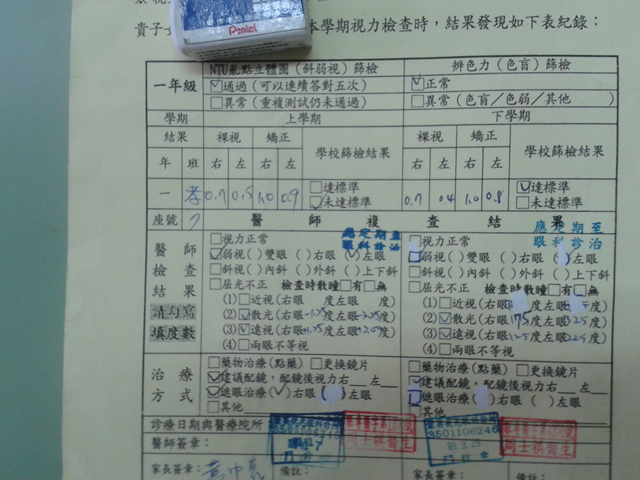 貴子
本學期視力檢查時，結果發現如下表紀錄：
Pentel
一年級 NTU亂點立體圖（斜弱視）篩檢 辨色力（色盲）篩檢
☑通過（可以連續答對五次） ☑正常
□異常（重複測試仍未通過） □異常（色盲／色弱／其他 ）
學期 上學期 下學期
結果 裸視 矯正 學校篩檢結果 裸視 矯正 學校篩檢結果
年 班 右 左 右 左 右 左 右 左
一 孝 0.7 0.5 1.0 0.9 □達標準 0.7 0.4 1.0 0.8 ☑達標準
☑未達標準 □未達標準
座號 7 醫師複查結果
應定期至眼科診治 應定期至眼科診治
醫師檢查結果
請勾寫填度數
□視力正常 □視力正常
☑弱視( )雙眼 ( )右眼 (✓)左眼 弱視( )雙眼 ( )右眼 左眼
□斜視( )內斜 ( )外斜 ( )上下斜 □斜視( )內斜 ( )外斜 ( )上下斜
□屈光不正 檢查時散瞳□有□無 □屈光不正 檢查時散瞳□有□無
(1)□近視(右眼 度左眼 度) (1)□近視(右眼 度左眼 度)
(2)☑散光(右眼 度左眼 度) (2)☑散光(右眼 175度左眼 325度)
(3)☑遠視(右眼 度左眼 度) (3)☑遠視(右眼 度左眼 225度)
(4)□兩眼不等視 (4)□兩眼不等視
治療方式
□藥物治療(點藥) □更換鏡片 □藥物治療(點藥) □更換鏡片
☑建議配鏡，配鏡後視力右__左__ ☑建議配鏡，配鏡後視力右__左__
☑遮眼治療(✓)右眼 ( )左眼 遮眼治療( )右眼 ( )左眼
□其他 □其他
診療日期與醫療院所
醫師簽章：
3501106246
家長簽章： 備註： 家長簽章： 備註：